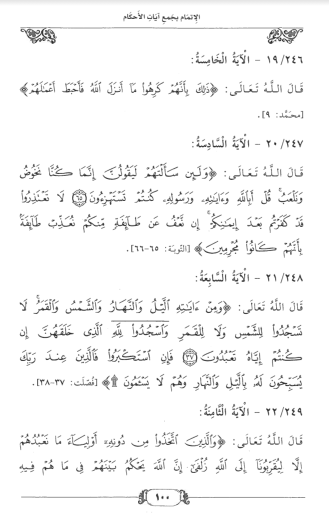 الإلمام بجمع آيات الأحكام
١٩/٢٤٦ - الْآيَةُ الْخَامِسَةُ:
قَالَ اللَّهُ تَعَالَى: ﴿ذَٰلِكَ بِأَنَّهُمْ كَرِهُوا مَا أَنزَلَ اللَّهُ فَأَحْبَطَ أَعْمَٰلَهُمْ﴾
[محمد: ٩].
٢٠/٢٤٧ - الْآيَةُ السَّادِسَةُ:
قَالَ اللَّهُ تَعَالَى: ﴿وَلَئِن سَأَلْتَهُمْ لَيَقُولُنَّ إِنَّمَا كُنَّا نَخُوضُ
وَنَلْعَبُ ۚ قُلْ أَبِاللَّهِ وَءَايَٰتِهِ وَرَسُولِهِ كُنتُمْ تَسْتَهْزِءُونَ ۝٦٥ لَا تَعْتَذِرُوا
قَدْ كَفَرْتُم بَعْدَ إِيمَٰنِكُمْ ۚ إِن نَّعْفُ عَن طَائِفَةٍ مِّنكُمْ نُعَذِّبْ طَائِفَةً
بِأَنَّهُمْ كَانُوا مُجْرِمِينَ﴾ [التوبة: ٦٥-٦٦].
٢١/٢٤٨ - الْآيَةُ السَّابِعَةُ:
قَالَ اللَّهُ تَعَالَى: ﴿وَمِنْ ءَايَٰتِهِ الَّيْلُ وَالنَّهَارُ وَالشَّمْسُ وَالْقَمَرُ ۚ لَا
تَسْجُدُوا لِلشَّمْسِ وَلَا لِلْقَمَرِ وَاسْجُدُوا لِلَّهِ الَّذِي خَلَقَهُنَّ إِن
كُنتُمْ إِيَّاهُ تَعْبُدُونَ ۝٣٧ فَإِنِ اسْتَكْبَرُوا فَالَّذِينَ عِندَ رَبِّكَ
يُسَبِّحُونَ لَهُ بِالَّيْلِ وَالنَّهَارِ وَهُمْ لَا يَسْـَٔمُونَ ۩﴾ [فصلت: ٣٧-٣٨].
٢٢/٢٤٩ - الْآيَةُ الثَّامِنَةُ:
قَالَ اللَّهُ تَعَالَى: ﴿وَالَّذِينَ اتَّخَذُوا مِن دُونِهِ أَوْلِيَاءَ مَا نَعْبُدُهُمْ
إِلَّا لِيُقَرِّبُونَا إِلَى اللَّهِ زُلْفَىٰ إِنَّ اللَّهَ يَحْكُمُ بَيْنَهُمْ فِي مَا هُمْ فِيهِ
١٠٠